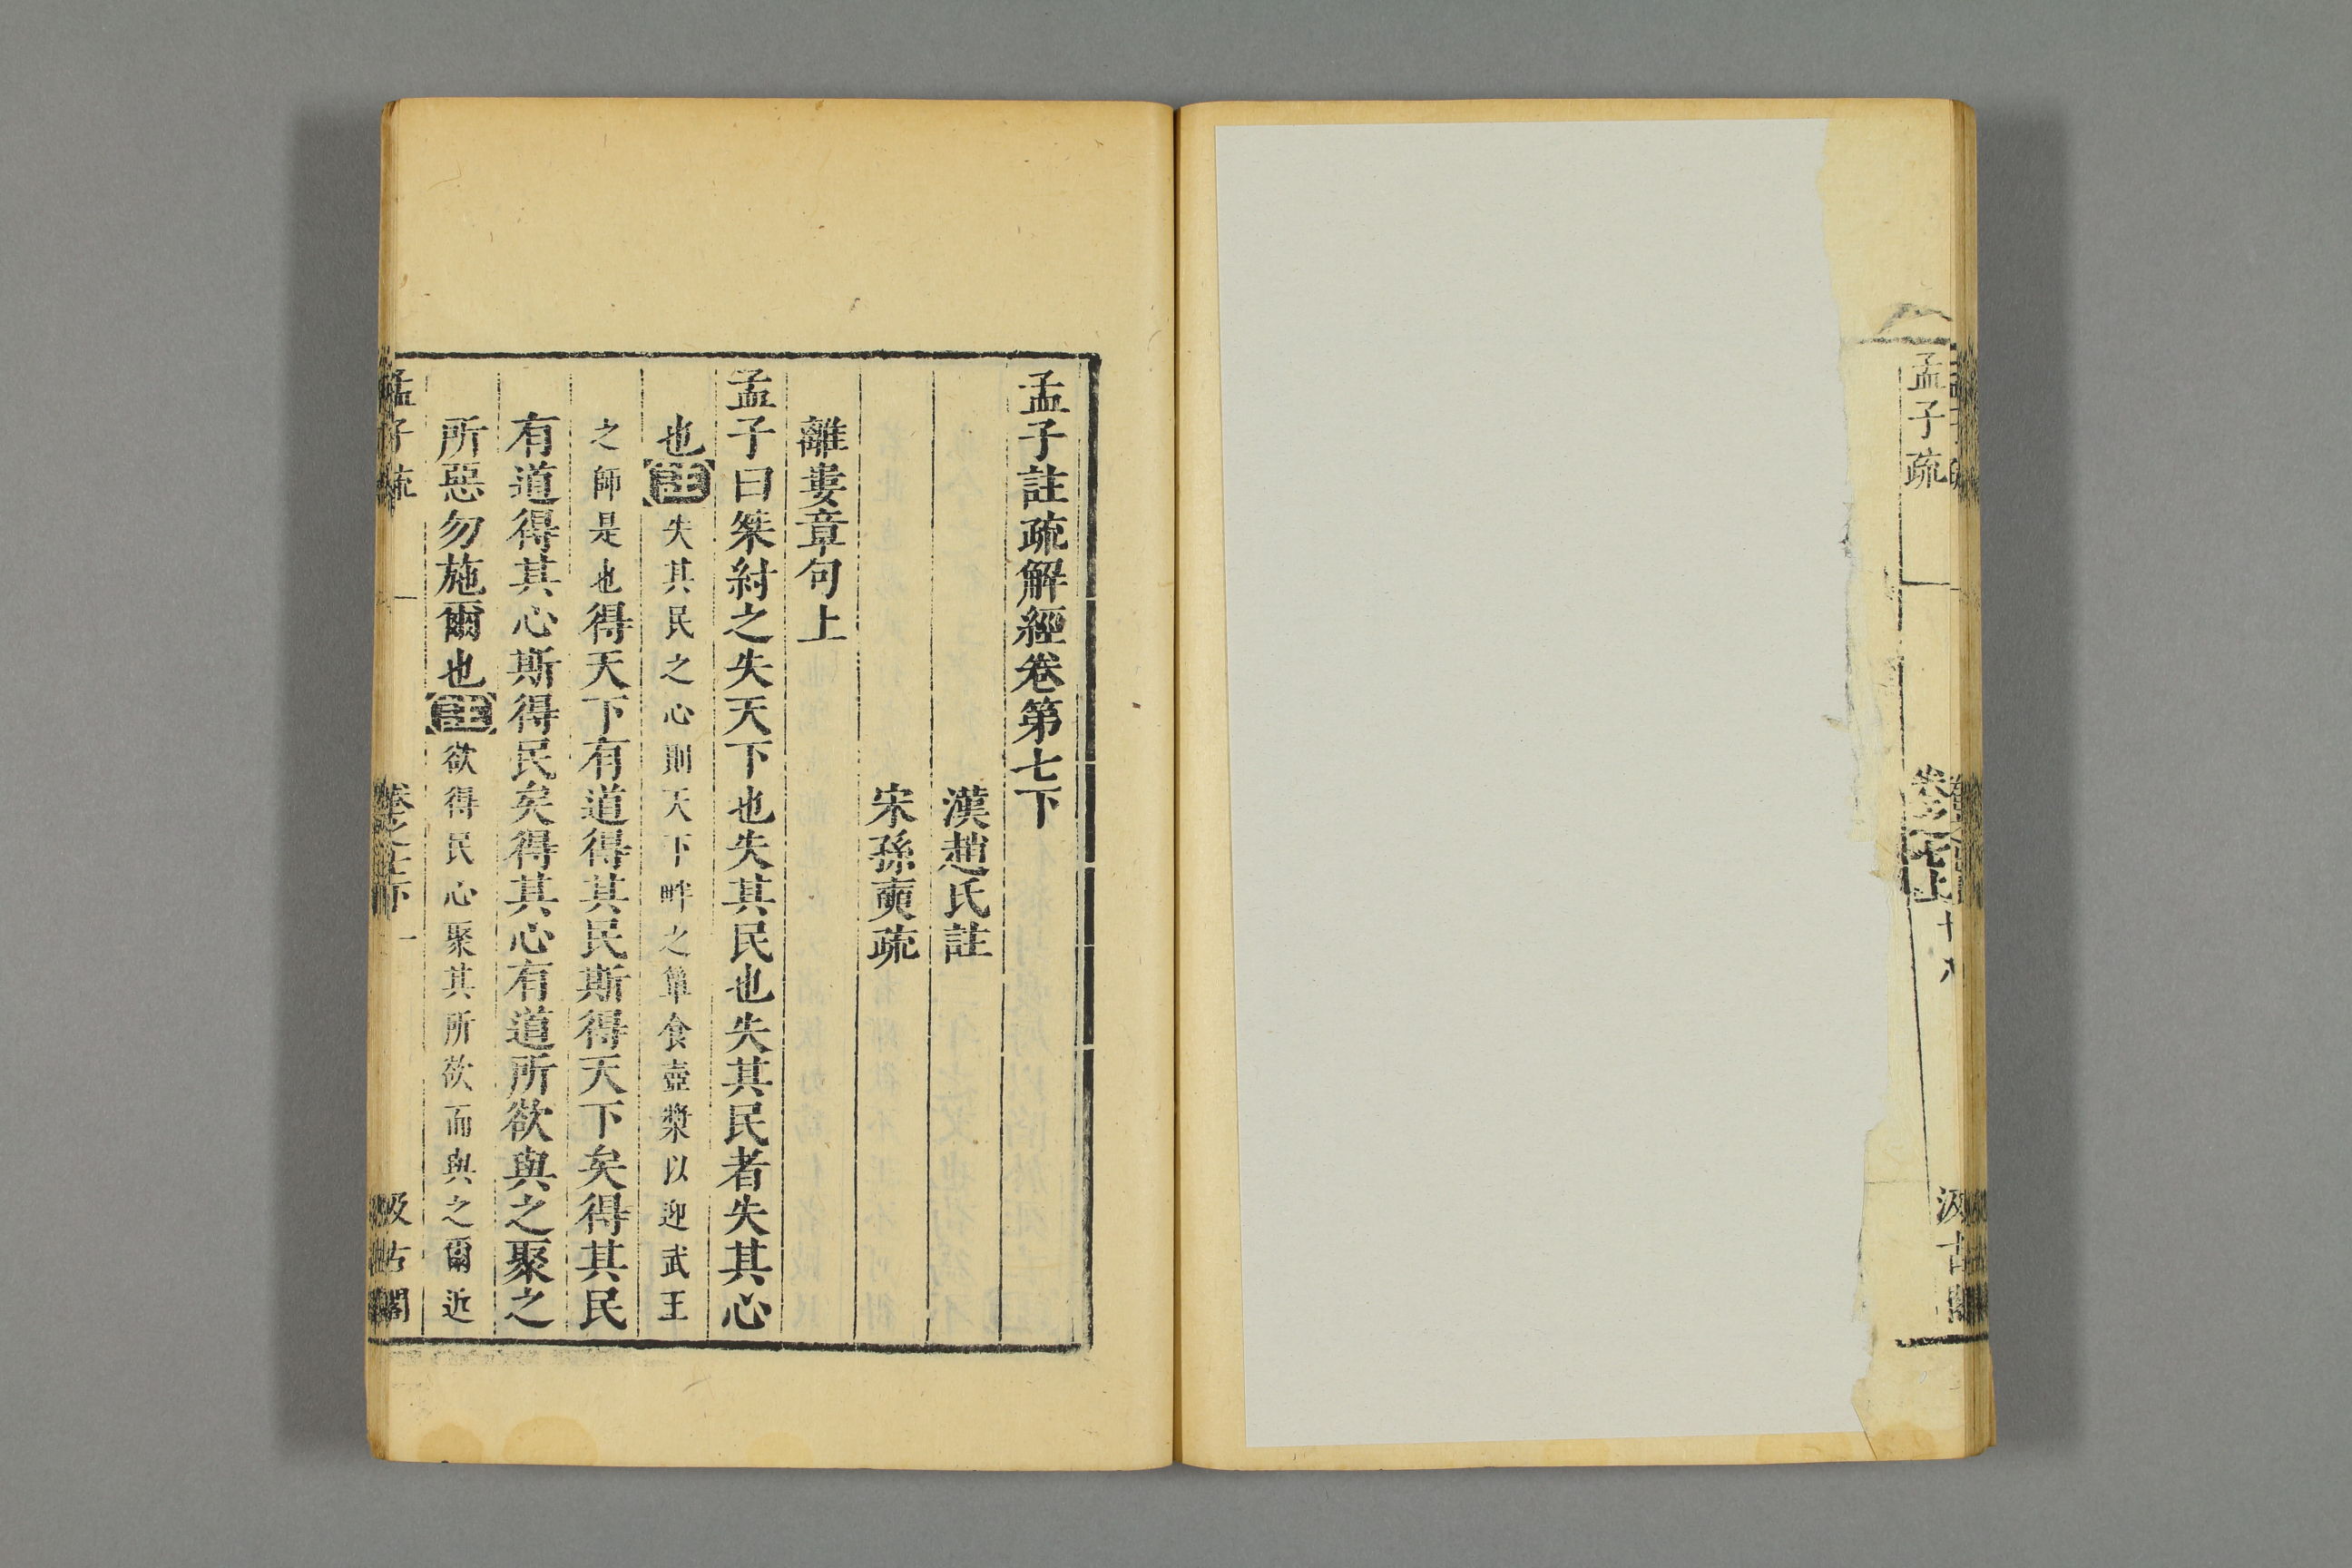 孟子疏
卷之七上
十八
汲古
孟子註疏解經卷第七下
漢趙氏註
宋孫奭疏
離婁章句上
孟子曰桀紂之失天下也失其民也失其民者失其心
也註失其民之心則天下畔之簞食壺漿以迎武王
之師是也得天下有道得其民斯得天下矣得其民
有道得其心斯得民矣得其心有道所欲與之聚之
所惡勿施爾也註欲得民心聚其所欲而與之爾近
孟子疏
卷之七下
一
汲古閣